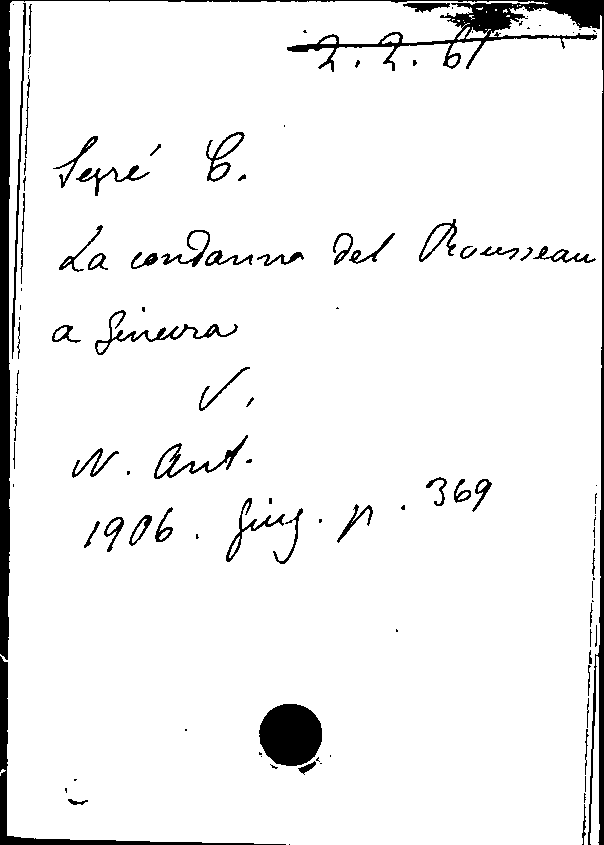 2.2.61
Segré C.
La condanna del Rousseau
a Ginevra
V.
N. Ant.
1906. Giug. p. 369